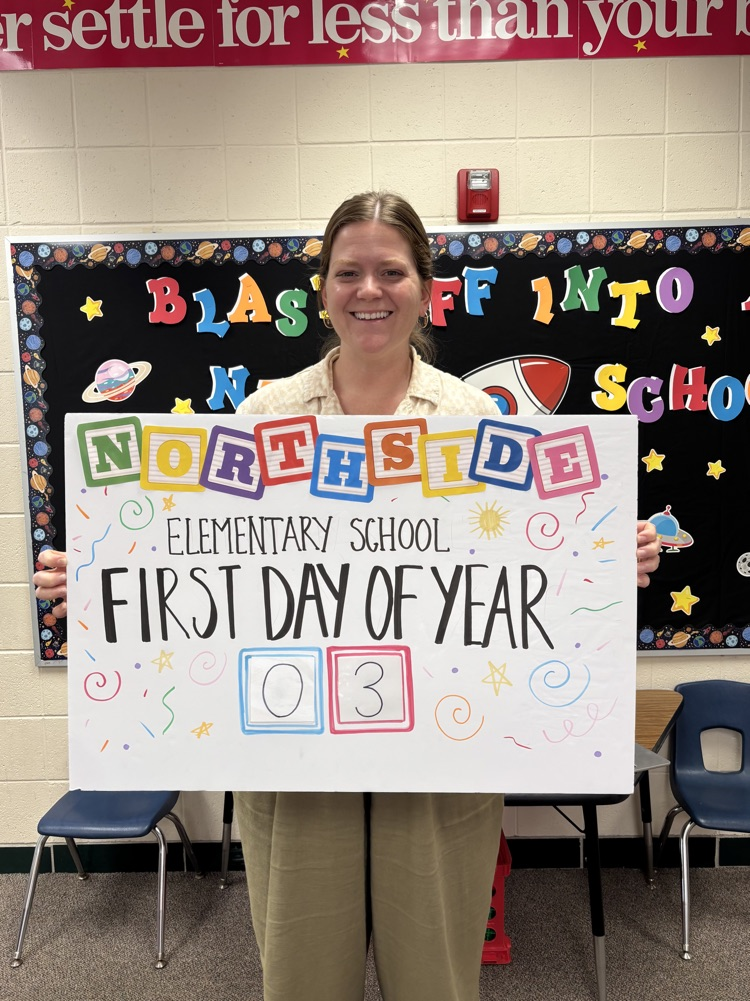 er settle for less than your b
BLAST OFF INTO A
N
SCHOO
NORTHSIDE
ELEMENTARY SCHOOL
FIRST DAY OF YEAR
03